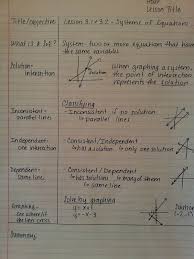 Lesson Title
Title/objective Lesson 3.1 & 3.2 - Systems of Equations
What is a SOE? System - two or more equations that have
the same variables
Solution = When graphing a system,
intersection the point of intersection
represents the solution.
Classifying
Inconsistent = Inconsistent if no solution
parallel lines parallel lines
Independent = Consistent / Independent
one intersection has a solution, only one solution
Dependent = Consistent / Dependent
same line has solutions, many of them
same line
Graphing = Solve by graphing
see where
the lines cross
y = -x-3
Solution
Summary